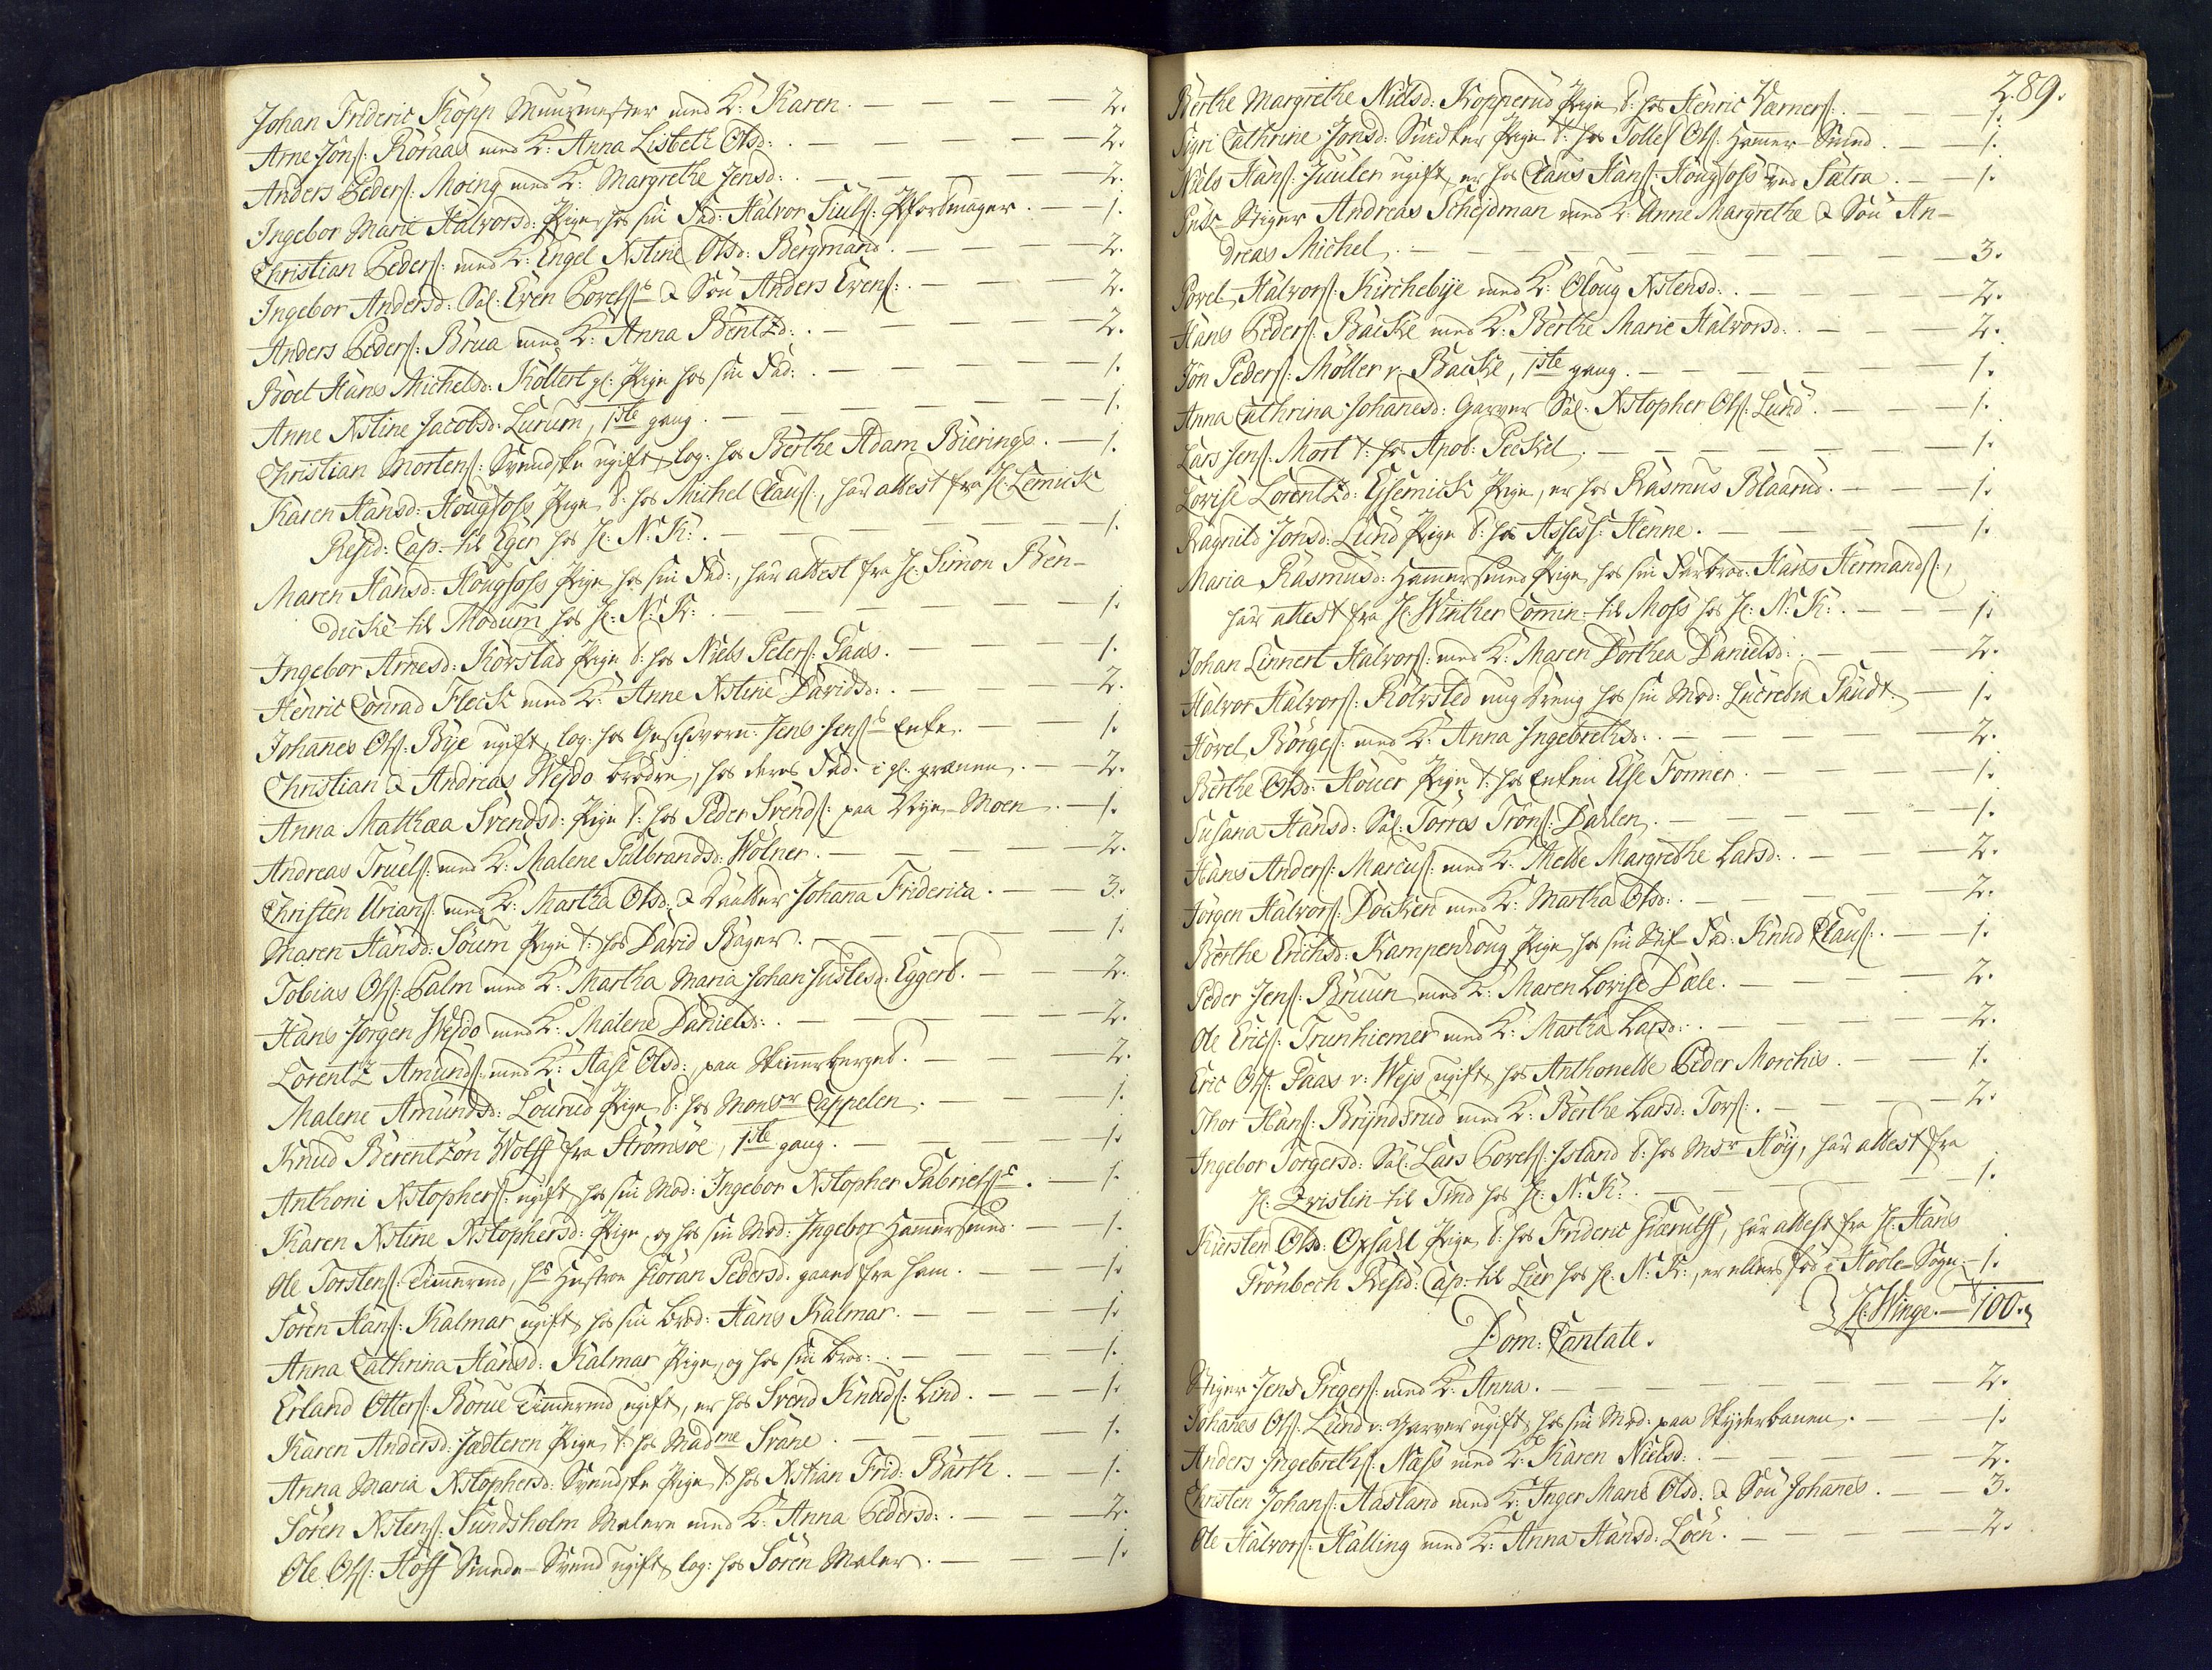 Johan Frideric Köpp Muurmester med K: Karen. — 2.
Arne Jöns: Röraas med K: Anna Lisbeth Olsd: — 2.
Anders Peders: Moeng med K: Margrethe Jensd: — 2.
Ingebor Marie Halvorsd: Pige hos sin Fad: Halvor Siuls: — 1.
Christian Peders: med K: Engel Xstine Olsd: Bergmand. — 2.
Ingebor Andersd: Sal: Even Povels: & Søn Anders Evens: — 2.
Anders Peders: Brua med K: Anna Bentzd: — 2.
Boel Hans Michelsd: Köllert gl: Pige hos sin Fad: — 1.
Anne Xstine Jacobsd: Lurum, 1ste gang. — 1.
Christian Mortens: Svendske ugift, log: hos Berthe Adam Bierings. — 1.
Karen Hansd: Hougfoss Pige t: hos Michel Claus:, har attest fra H: Lemick
Resid: Cap: til Eger hos H: N: K: — 1.
Maren Hansd: Hougfoss Pige hos sin Fad:, har attest fra H: Simon Ben-
dicke til Modum hos H: N: K: — 1.
Ingebor Arnesd: Korstad Pige t: hos Niels Peters: Gaas. — 1.
Henric Conrad Fleck med K: Anne Xstine Davidsd: — 2.
Johanes Ols: Bye ugift, log: hos Geschworn: Jens Jens: Enke. — 1.
Christian & Andreas Wejdo brødre, hos deres Fad: i gl: — 2.
Anna Mathæa Svendsd: Pige t: hos Peder Svends: paa Nye-Moen. — 1.
Andreas Truels: med K: Malene Gulbrandsd: Wölner. — 2.
Christen Urians: med K: Martha Olsd: & Daatter Johana Friderica. — 3.
Maren Hansd: Soum Pige t: hos David Bager. — 1.
Tobias Ols: Palm med K: Martha Maria Johan Justesd: Eggers. — 2.
Hans Jörgen Wejdo med K: Malene Danielsd: — 2.
Lorentz Amunds: med K: Aase Olsd: paa Skinnerberget. — 2.
Malene Amundsd: Lourud Pige t: hos Monsr Cappelen. — 1.
Knud Berentzön Wolff fra Strömsöe, 1ste gang. — 1.
Anthoni Xstophers: ugift hos sin Mod: Ingebor Xstopher Gabriels: — 1.
Karen Xstine Xstophersd: Pige, og hos sin Mod: Ingebor Hamersmed. — 1.
Ole Torstens: Timermd, hs Hustroe Göran Pedersd: gaaed fra ham. — 1.
Sören Hans: Kalmar ugift hos sin brod: Hans Kalmar. — 1.
Anna Cathrina Hansd: Kalmar Pige, og hos sin brod: — 1.
Erland Otters: Borue Timermd ugift, er hos Svend Knuds: Lind. — 1.
Karen Andersd: Jædteren Pige t: hos Madme Svane. — 1.
Anna Maria Xstophersd: Svendske Pige t: hos Xstian Frid: Barth. — 1.
Sören Xstens: Sundsholm Malere med K: Anna Pedersd: — 2.
Ole Ols: Hoff Smede-Svend ugift, log: hos Sören Maler. — 1.
289.
Berthe Margrethe Nielsd: Kopperud Pige t: hos Henric Varners: — 1.
Sigri Cathrine Jonsd: Snedker Pige t: hos Tollef Ols: Hamer-Smed. — 1.
Niels Hans: Juulen ugift, er hos Claus Hans: Hougfoss ved Sætra. — 1.
Stiger Andreas Schejdman med K: Anne Margrethe & Søn An-
dreas Michel. — 3.
Povel Halvors: Kirchebye med K: Oloug Xstensd: — 2.
Hans Peders: Backe med K: Berthe Marie Halvorsd: — 2.
Jon Peders: Möller v: Backe, 1ste gang. — 1.
Anna Cathrina Johanesd: Garver Sal: Xstopher Ols: Lund. — 1.
Lars Jens: Mort t: hos Apot: Peckel. — 1.
Lovise Lorentzd: Glemick Pige, er hos Rasmus Blaarud. — 1.
Ragnild Jonsd: Lund Pige t: hos Assess: Henne. — 1.
Maria Rasmusd: Hamersmed Pige hos sin Farbrod: Hans Hermands:,
har attest fra H: Winther Comin: til Moss hos H: N: K: — 1.
Johan Linnert Halvors: med K: Maren Dorthea Danielsd: — 2.
Halvor Halvors: Rölvsted ung Dreng hos sin Mod: Lucretia Gandt. — 1.
Hovel Börges: med K: Anna Ingebrethsd: — 2.
Berthe Olsd: Houer Pige t: hos Enken Else Former. — 1.
Susana Hansd: Sal: Torres Trons: Dahlen. — 1.
Hans Anders: Marcus: med K: Mette Margrethe Larsd: — 2.
Jörgen Halvors: Docken med K: Martha Olsd: — 2.
Berthe Erichsd: Kampenhoug Pige hos sin Stif-Fad: Knud Claus: — 1.
Peder Jens: Bruun med K: Maren Lovise Dæle. — 2.
Ole Erics: Trunhiemer med K: Martha Larsd: — 2.
Eric Ols: Gaas v: Wejs ugift, hos Anthonette Peder Morchis. — 1.
Thor Hans: Bryndsrud med K: Berthe Larsd: Tors: — 2.
Ingebor Torgersd: Sal: Lars Povels: Island t: hos Msr Høy, har attest fra
H: Qvislin til Tind hos H: N: K: — 1.
Kiersten Olsd: Opsahl Pige t: hos Frideric Giærulff, har attest fra H: Hans
Grönbech Resid: Cap: til Lier hos H: N: K:, er ellers fød i Hoole-Sogn. — 1.
H: Winge. — 100.
Dom: Cantate.
Stiger Jens Gregers: med K: Anna. — 2.
Johanes Ols: Lund v: Garver ugift, hos sin Mod: paa Skyderbanen. — 1.
Anders Ingebreths: Næss med K: Karen Nielsd: — 2.
Christen Johans: Aasland med K: Inger Marie Olsd: & Søn Johanes. — 3.
Ole Halvors: Halling med K: Anna Hansd: Loen. — 2.